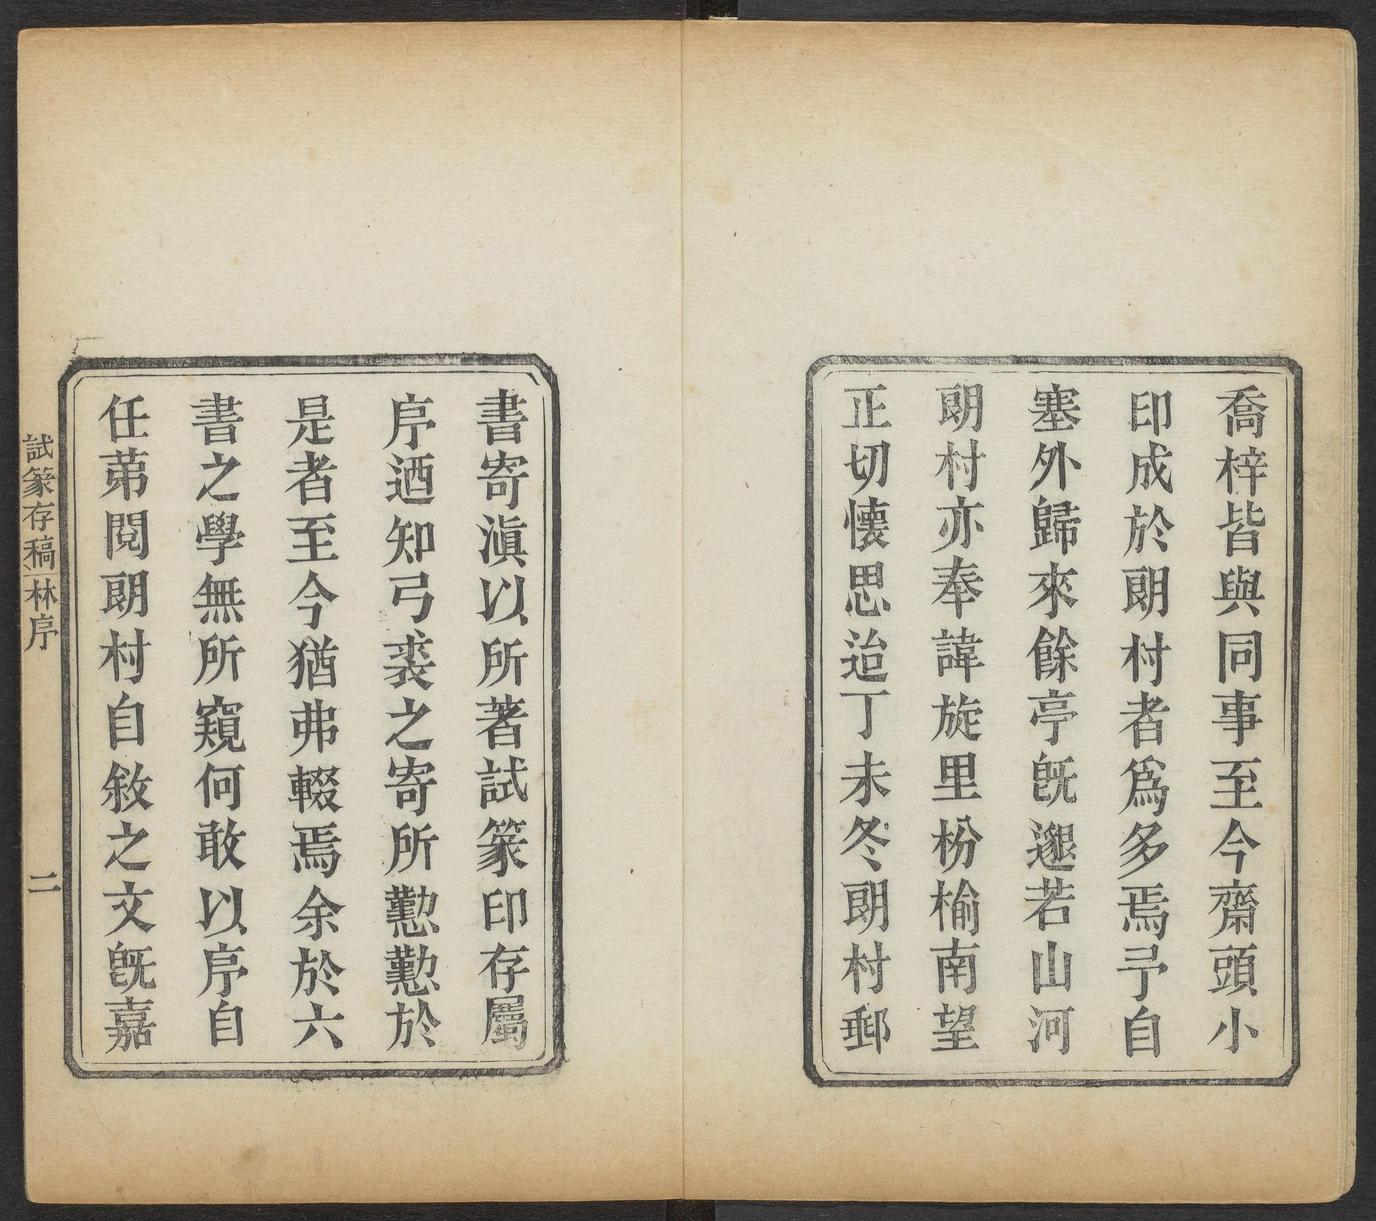 喬梓皆與同事至今齋頭小
印成於朗村者爲多焉予自
塞外歸來餘亭旣邈若山河
朗村亦奉諱旋里枌榆南望
正切懷思迨丁未冬朗村郵
書寄滇以所著試篆印存屬
序迺知弓裘之寄所懃懃於
是者至今猶弗輟焉余於六
書之學無所窺何敢以序自
任苐閱朗村自敘之文旣嘉
試篆存稿 林序 二